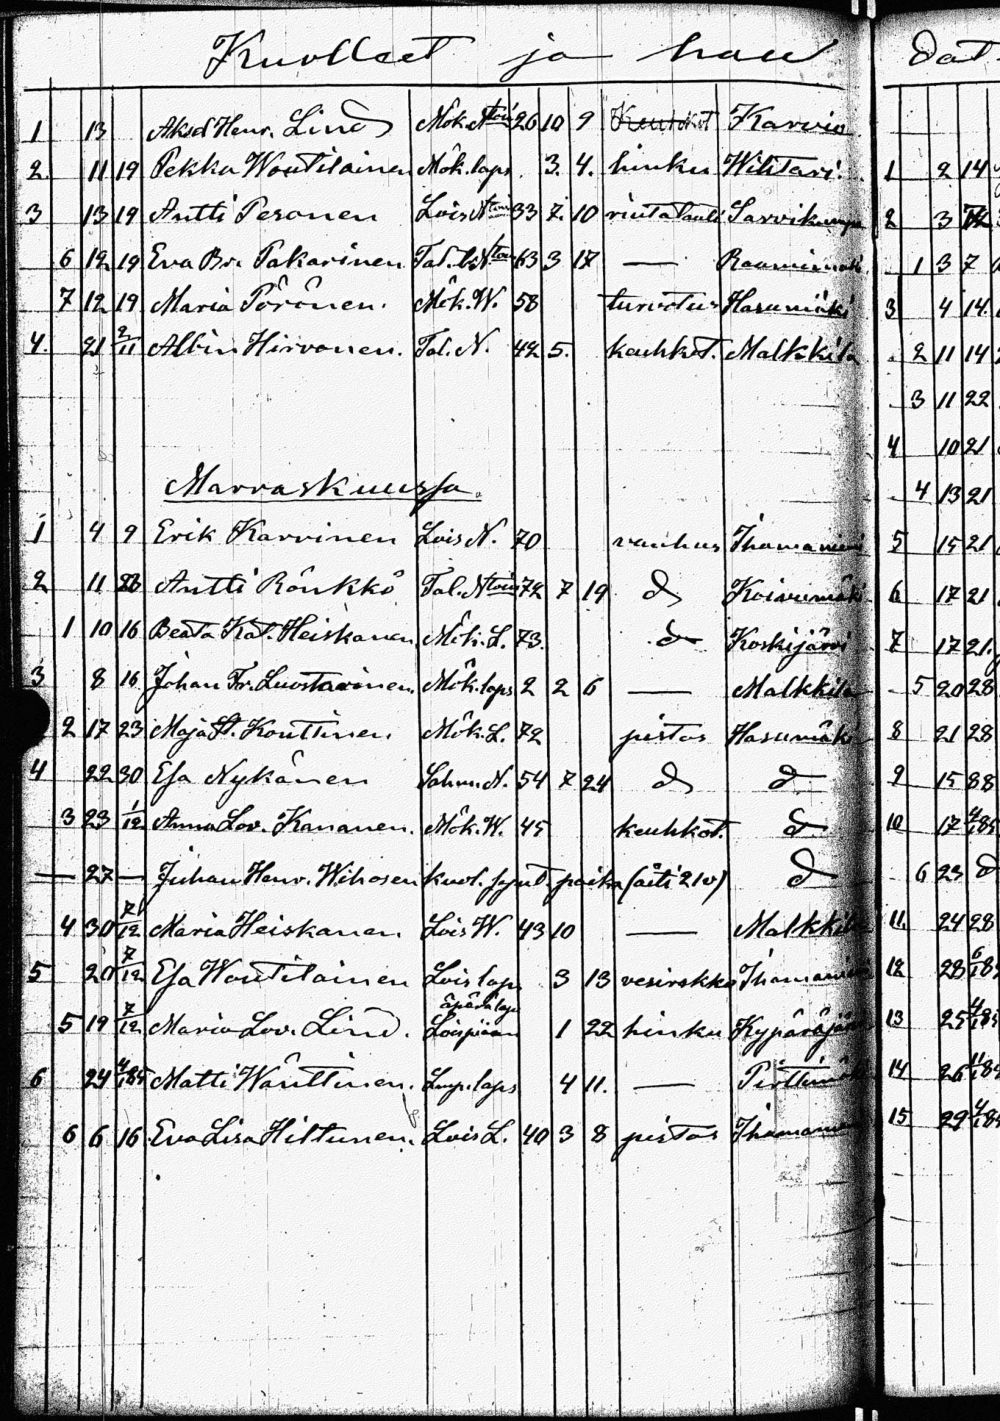 Kuolleet ja hau
dat
1 13 Aksel Henr. Lind Mök. N 26 10 9 Karvio
2 11 19 Pekka Woutilainen Mök. laps. 3. 4. hinku Wihtari
3 13 19 Antti Pesonen Lois N 33 7. 10 rintatauti
6 12 19 Eva Br. Pakarinen Tal. 63 3 17 —
7 12 19 Maria Pöyönen. Mök. W. 58 turvotus Hasumäki
4. 21 2/11 Albin Hirvonen. Tal. N. 42 5. keuhkot. Malkkila
Marraskuussa.
1 4 9 Erik Karvinen Lois N. 70 vanhus
2 11 23 Antti Rönkkö Tal. 72 7 19 d Koivumäki
1 10 16 Beata Kat. Heiskanen Mök. L. 73. d Koskijärvi
3 8 16 Johan Fr. Luostarinen Mök. laps 2 2 6 — Malkkila
2 17 23 Maja St. Kouttinen Mök. L. 72 pistos Hasumäki
4 22 30 Esa Nykänen N. 54 7 24 d d
3 23 1/12 Anna Lov. Kananen. Mök. W. 45 keuhkot. d
— 27 — Juhan Henr. Wihosen kuol. synt. poika (äiti 21v) d
4 30 7/12 Maria Heiskanen Lois W. 43 10 — Malkkila
5 20 7/12 Esa Woutilainen Lois laps 3 13
5 19 7/12 Maria Lov. Lind. äpärä laps 1 22 hinku
6 24 4/185 Matti Wänttinen. laps 4 11. —
6 6 16 Eva Lisa Hiltunen. Lois L. 40 3 8 pistos
1 2 14
2 3
1 3 7
3 4 14
2 11 14
3 11 22
4 10 21
4 13 21
5 15 21
6 17 21
7 17 21
5 20 28
8 21 28
9 15 88
10 17
6 23 d
11. 24 28
12 28
13 25
14 26
15 29